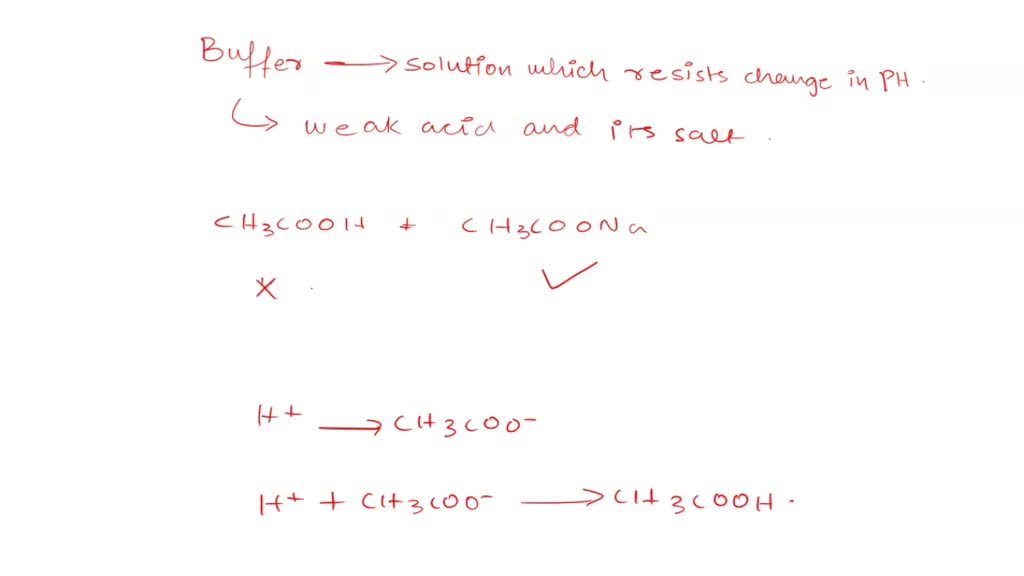 Buffer → solution which resists change in PH.
↳ weak acid and its salt.
CH3COOH + CH3COONa
X ✓
H+ → CH3COO-
H+ + CH3COO- → CH3COOH.